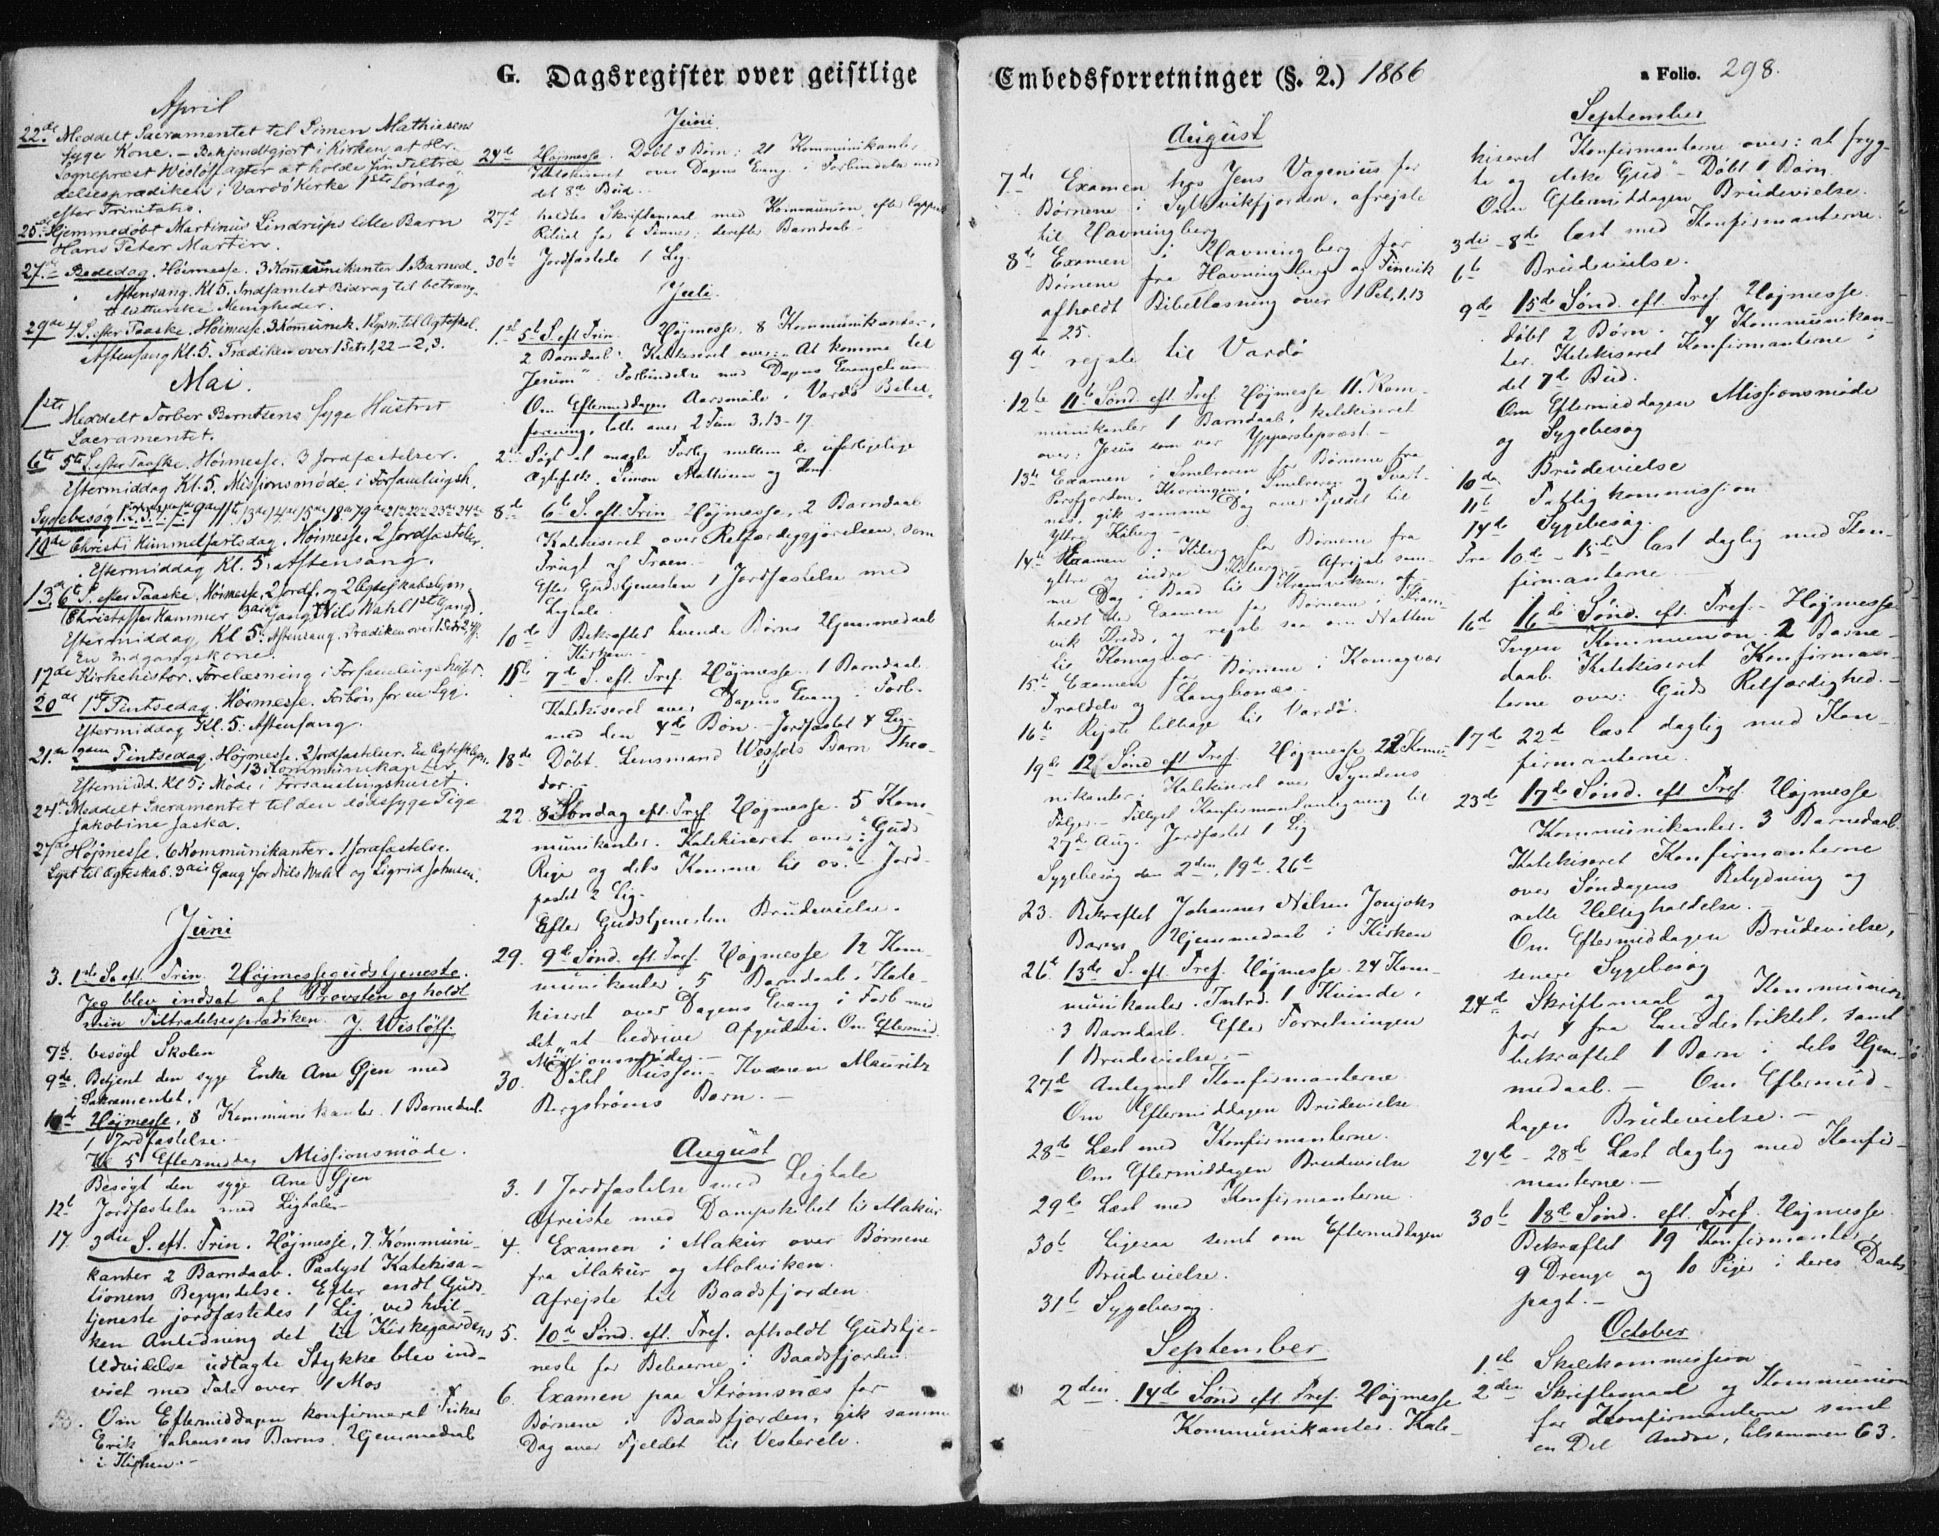 G. Dagsregister over geistlige
Embedsforretninger (§. 2.) 1866
a Folio. 298.
April
22de Meddelt Sacramentet til Simen Mathiesens
syge Kone. – Bekjendtgjort i Kirken at Hr.
Sognepræst Wisløff agter at holde sin Tiltræ-
delsesprædiken i Vardö Kirke 1ste Söndag
efter Trinitatis.
25de Hjemmedöbt Martinus Lindrups lille Barn
Hans Peter Martin.
27de Bededag. Höimesse. 3 Kommunikanter. 1 Barned.
Aftensang. Kl 5. Indsamlet Bidrag til betræng-
te lutherske Menigheder.
29de 4. S. efter Paaske. Höimesse. 3 Komunik.
Aftensang Kl. 5. Prædiken over 1 Pet 1,22 – 2,3.
Mai.
1ste Meddelt Torber Berntsens syge Hustru
Sacramentet.
6te 5te S. efter Paaske. Höimesse. 3 Jordfæstelser.
Eftermiddag Kl. 5. Missionsmöde i Forsamlingsh.
Sygebesøg
10de Christi Himmelfartsdag. Höimesse. 2 Jordfæstelser.
Eftermiddag Kl. 5. Aftensang.
13de 6te S. efter Paaske. Höimesse. 2 Jordf. og 2 Egteskabslysn.
Christoffer Hammer 3die Gang, Nils Wahl 1ste Gang.
Eftermiddag Kl 5. Aftensang. Prædiken over
En Indgangskone.
17de Kirkehistor. Forelæsning i Forsamlingshuset.
20de 1ste Pintsedag. Höimesse. Forbön for en Syg.
Eftermiddag Kl. 5. Aftensang.
21de 2den Pintsedag. Höjmesse. 2 Jordfæstelser.
13 Kommunikanter
Eftermidd. Kl 5. Möde i Forsamlingshuset.
24de Meddelt Sacramentet til den dödssyge Pige
Jakobine Jaska.
27de Höjmesse. 6 Kommunikanter. 1 Jordfæstelse.
Lyst til Egteskab. 3die Gang for Nils Wahl og Sigrid Johnsen.
Juni
3. 1ste S. eft Trin. Höjmessegudstjeneste.
Jeg blev indsat af Provsten og holdt
min Tiltrædelsesprædiken. J. Wisløff.
7de besøgt Skolen
9de Betjent den syge Enke Ane Gjen med
Sakramentet.
Höjmesse. 8 Kommunikanter. 1 Barnedaab.
1 Jordfæstelse.
Kl 5 Eftermiddag Missionsmöde.
Besøgt den syge Ane Gjen
12te Jordfæstelse med Ligtaler
17. 3die S. eft. Trin. Höjmesse, 7 Kommuni-
kanter 2 Barndaab. Paalyst Katekisa-
tionens Begyndelse. Efter endt Guds-
tjeneste jordfæstedes 1 Lig, ved hvil-
ken Anledning det til Kirkegaardens
Udvidelse udlagte Stykke blev ind-
viet med Tale over 1 Mos
Om Eftermiddagen konfirmeret Fisker
Erik Johansens Barns Hjemmedaab
i Kirken. –
Juni
24de Höjmesse. Döbt 3 Börn: 21 Kommunikanter
Katekiseret over Dagens Evang. i Forbindelse med
det 8de Bud.
27de holdtes Skriftemaal med Kommunion efter lappisk
Ritual for 6 Finner; derefter Barndaab –
30te Jordfæstede 1 Lig.
Juli.
1ste 5te S. eft Trin. Höjmesse. 8 Kommunikanter,
2 Barndaab: Katekiseret over: "At komme til
Jesum" i Forbindelse med Dagens Evangelium
Om Eftermiddagen Aarsmöde i Vardö Bibel-
forening, talte over 2 Tim 3,13–17.
2. Søgt at mægle Forlig mellem de uforligelige
Ægtefolk, Simon Mathisen og Kone
8de 6te S. eft. Trin. Höjmesse, 2 Barndaab
Katekiseret over Retfærdiggjörelsen, som
Frugt af Troen. –
Efter Gudstjenesten 1 Jordfæstelse med
Ligtale.
10de Bekræftet tvende Börns Hjemmedaab
i Kirken. –
15te 7de S. eft. Tref. Höjmesse. 1 Barndaab.
Katekiseret over Dagens Evang. i Forb.
med den 4de Bön. – Jordfæstet 4 Lig. –
18de Döbt Lensmand Wessels Barn Theo-
dor. –
22 8de Söndag eft. Tref. Höjmesse. 5 Kom-
munikanter. Katekiseret over: "Guds
Rige og dets Komme til os." – Jord-
fæstet 2 Lig.
Efter Gudstjenesten Brudevielse.
29. 9de Sönd. eft. Tref. Höjmesse 12 Kom-
munikanter. 5 Barndaab. Kate-
kiseret over Dagens Evang. i Forb med
det at bedrive Afguderi. Om Eftermid.
Missionsmöde. –
30. Döbt Russen – Kvænen Mauritz
Bergströms Barn. –
August
3. 1 Jordfæstelse med Ligtale
Afreiste med Dampskibet til Makur
4. Examen i Makur over Börnene
fra Makur og Molviken.
Afrejste til Baadsfjorden.
5. 10de Sönd. eft. Tref. afholdt Gudstje-
neste for Beboerne i Baadsfjorden.
6. Examen paa Strömsnæs for
Börnene i Baadsfjorden, gik samme
Dag over Fjeldet til Vesterelv.
August
7de Examen hos Jens Vagenius for
Börnene i Syltevikfjorden, afrejste
til Havningberg
8de Examen i Havningberg for
Börnene fra Havningberg og Finvik
afholdt Bibellæsning over 1 Pet, 1,13
– 25.
9de rejste til Vardö
12te 11te Sönd. eft. Tref. Höjmesse 11 Kom-
munikanter 1 Barndaab, katekiseret
over: Jesus som vor Ypperstepræst. –
13de Examen i Smelroren for Börnene fra
Persfjorden, Kevringen, Smelroren og Svart-
nes, gik samme Dag over Fjeldet til
ytre Kiberg –
14de Examen i Kiberg for Börnene fra
yttre og indre Kiberg – Afrejst sam-
me Dag i Baad til Kramviken, af-
holdt der Examen for Börnene i Kram-
vik Kreds, og rejste saa om Natten
til Komagvær.
15de Examen for Börnene i Komagvær
Troldelv og Langbunes.
16te Rejste tilbage til Vardö.
19de 12 Sönd. eft Tref. Höjmesse 22 Kommu-
nikanter. Katekiseret over Syndens
Fölger. – Tillyst Konfirmantantegning til
27de Aug. Jordfæstet 1 Lig
Sygebesög den 2den, 19de, 26te
23. Bekræftet Johannes Nilsen Jonjoks
Barns Hjemmedaab i Kirken
26te 13de S. eft. Tref. Höjmesse. 24 Kom-
munikanter. Introd. 1 Kvinde,
3 Barndaab. Efter Forretningen
1 Brudevielse. –
27de Antegnet Konfirmanterne
Om Eftermiddagen Brudevielse
28de Læst med Konfirmanterne.
Om Eftermiddagen Brudevielse
29de Læst med Konfirmanterne.
30te Ligesaa samt om Eftermiddagen
Brudevielse.
31te Sygebesøg.
September
2den. 14de Sönd eft Tref. Höjmesse
Kommunikanter. Kate-
September
kiseret Konfirmanterne over: at fryg-
te og elske Gud – Döbt 1 Barn
Om Eftermiddagen Brudevielse.
3die – 8de læst med Konfirmanterne.
6te Brudevielse.
9de 15de Sönd. eft. Tref. Höjmesse
döbt 2 Börn. 4 Kommunikan-
ter. Katekiseret Konfirmanterne i
det 7de Bud.
Om Eftermiddagen Missionsmöde
og Sygebesøg
10de Brudevielse
11te Fattigkommission
14de Sygebesøg.
Fra 10de – 15de læst daglig med Kon-
firmanterne
16de 16de Sönd. eft. Tref. – Höjmesse
Ingen Kommunion. 2 Barne-
daab. Katekiseret Konfirman-
terne over: Guds Retfærdighed. –
17de 22de læst daglig med Kon-
firmanterne.
23de 17de Sönd. eft Tref. Höjmesse
Kommunikanter. 3 Barnedaab
Katekiseret Konfirmanterne
over Söndagens Betydning og
rette Helligholdelse. –
Om Eftermiddagen Brudevielse,
senere Sygebesøg
24de Skriftemaal og Kommunion
for 4 fra Landdistriktet, samt
bekræftet 1 Barn i dets Hjem-
medaab. – Om Eftermid-
dagen Brudevielse. –
24de – 28de Læst daglig med Konfir-
manterne. –
30te 18de Sönd. eft. Tref. Höjmesse.
Bekræftet 19 Konfirmanter,
9 Drenge og 10 Piger i deres Daabs-
pagt. –
October
1ste Skolekommission
2den Skriftemaal og Kommunion
for Konfirmanterne samt
en Del Andre, tilsammen 63.